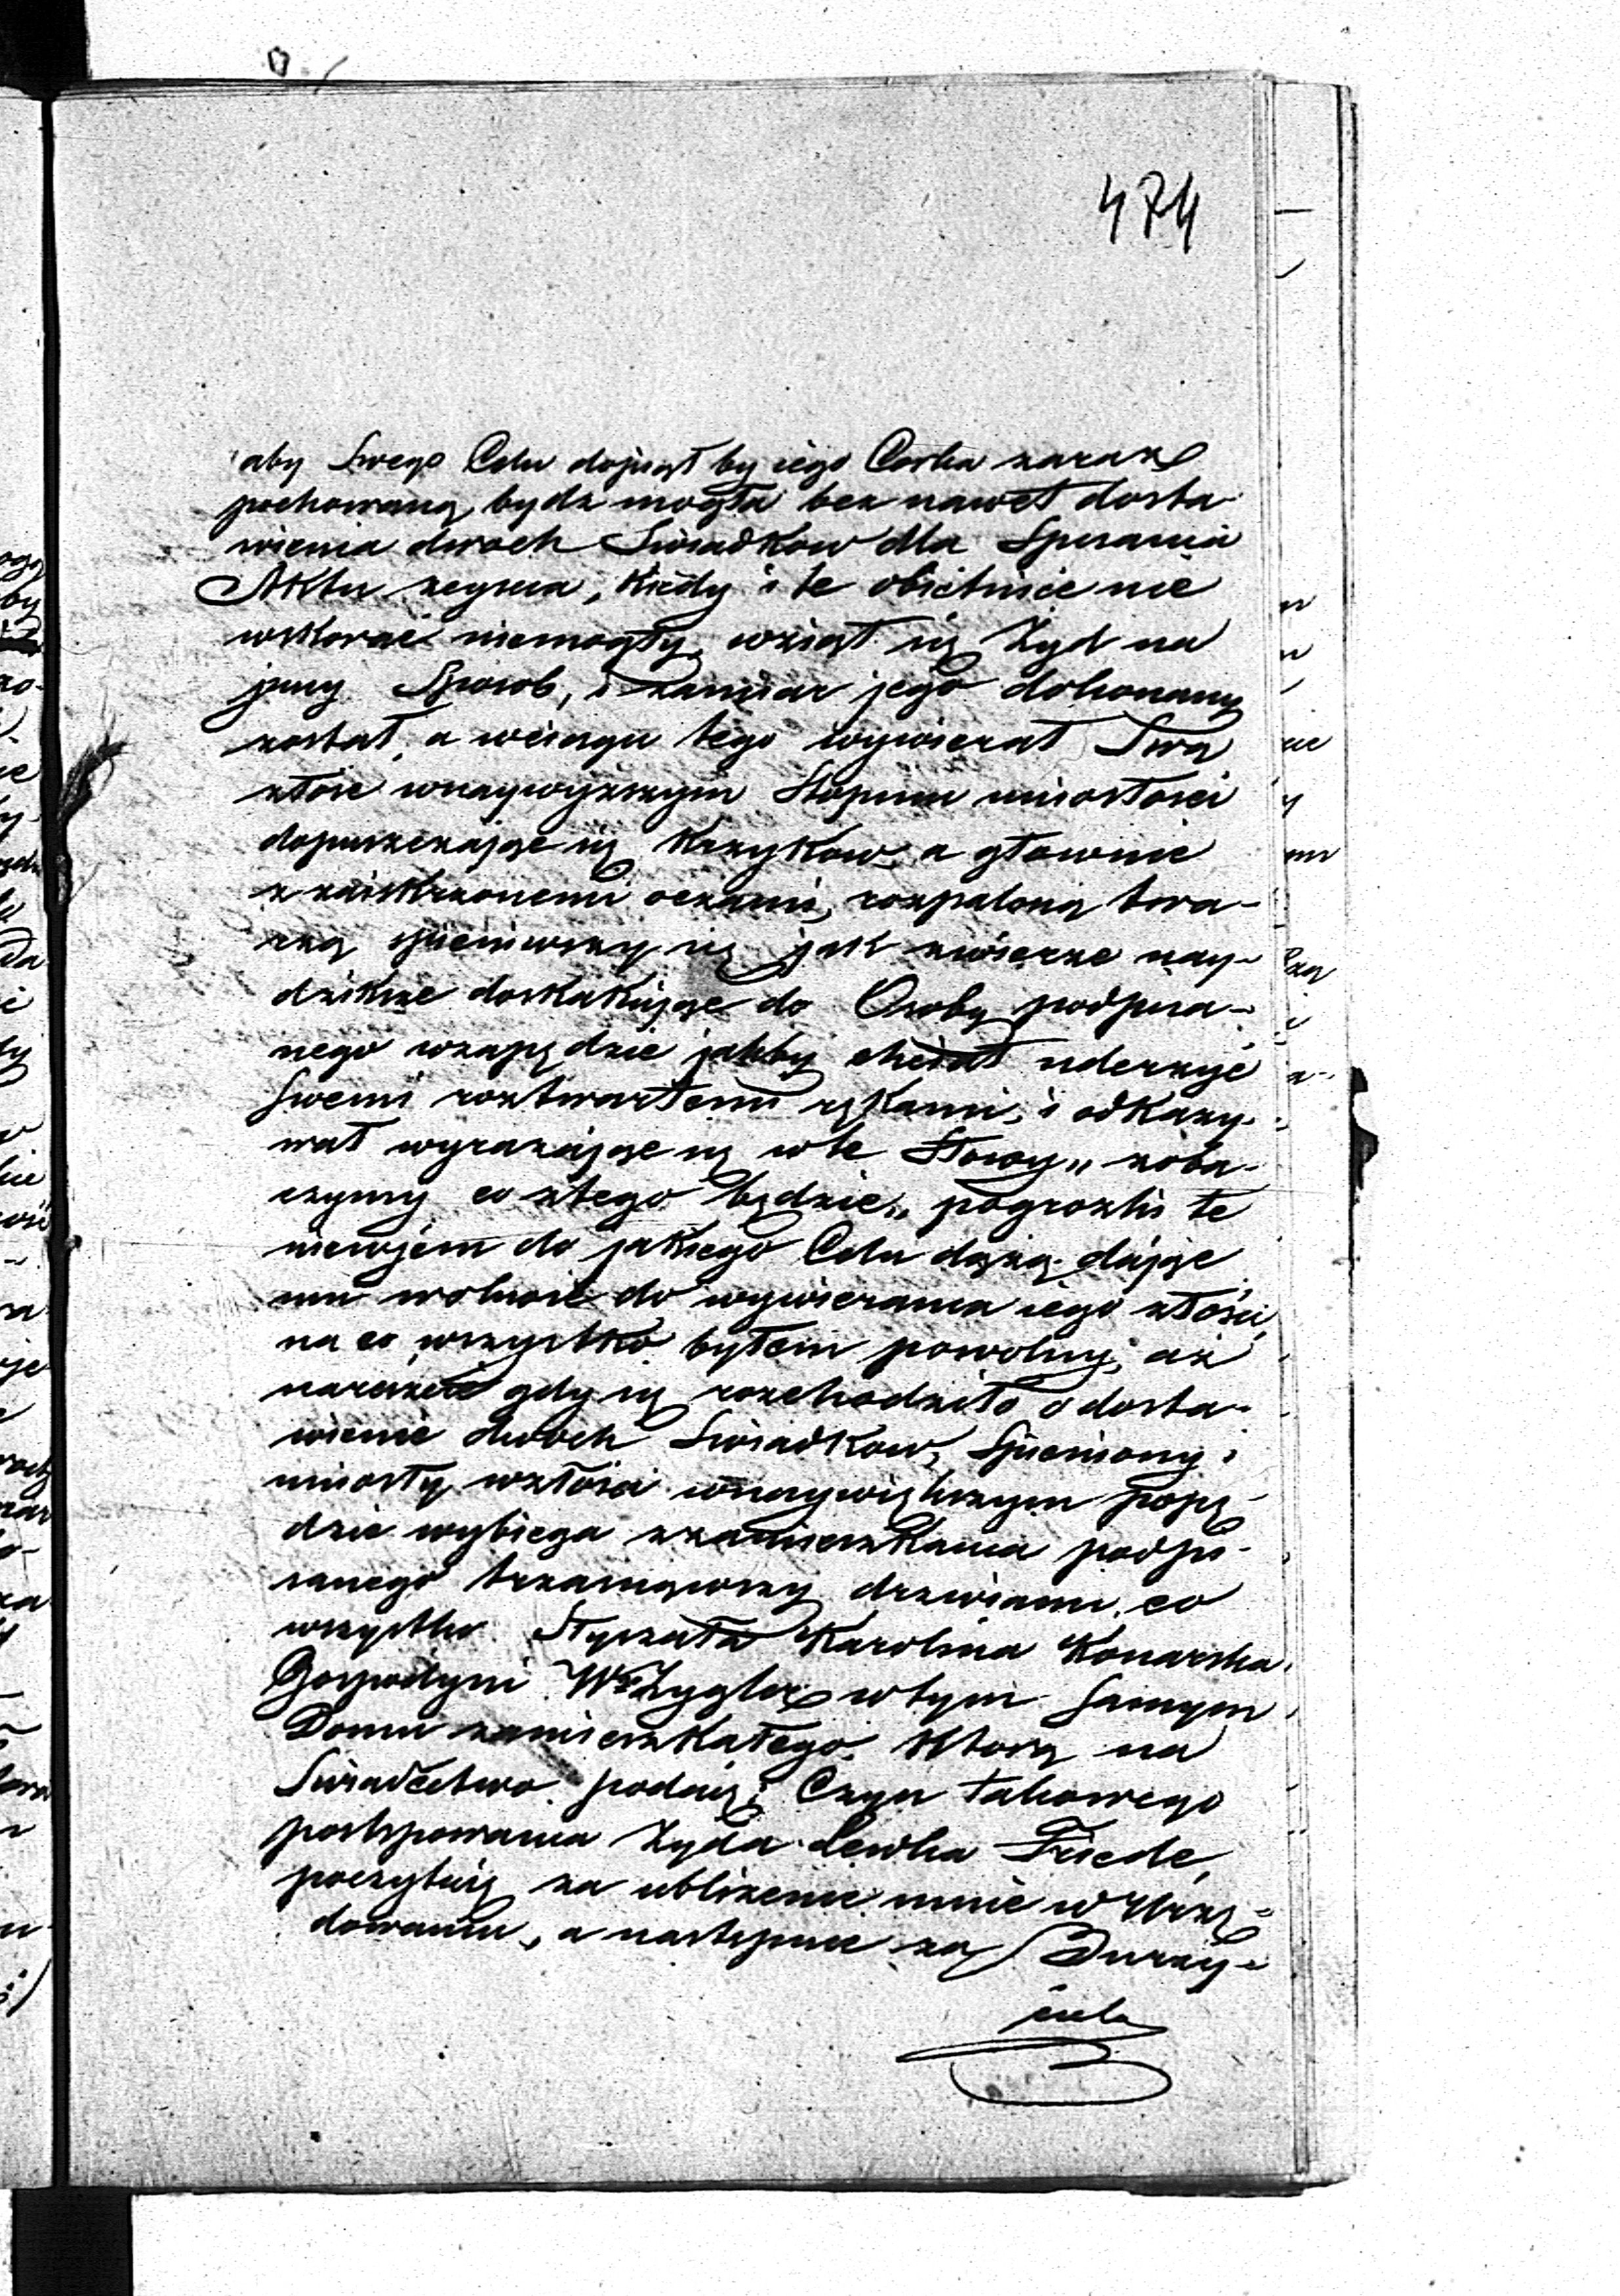 474
aby Swego Celu dopiąt by iego Corka zaraz
pochowaną bydz mogła bez nawet dosta-
wienia dwoch Swiadkow dla Spisania
Aktu zeyscia, Kiedy i te obietnice nie
wskorać niemogły, wziąt się Żyd na
jnny Sposob, i zamiar jego dokonany
został, a wciągu tego wywierat Swą
złosc wnaywyższym Stopniu uniosłosci
dopuszczając się Krzykow, a głownie
z zaiskrzonemi oczami, rozpaloną twa-
rzą spieniwszy się jak zwierze nay-
dziksze doskakując do Osoby podpisa-
nego wzapędzie jakby chciat uderzyć
Swemi roztwartemi rękami, i odkazy-
wat wyrazając się wte Słowy „ zoba-
czymy co ztego będzie „ pogrozki te
niewjem do jakiego Celu dążą dając
mu wolność do wywierania iego złości,
na co wszystko bytem powolny, aż
nareszcie gdy się rozchodziło o dosta-
wienie dwoch Swiadkow, Spieniony i
uniosły wzłości wnaywiększym popę-
dzie wybiega zzamieszkania podpi-
sanego trzasnąwszy drzwiami, co
wszystko Słyszała Karolina Konarska
Gospodyni Wº Zygler wtym samym
Domu zamieszkałego. Ktorą na
Swiadectwo podaię i Czyn takowego
postępowania Żyda Lewka Friede,
poczytuię za ubliżenie mnie w Urzę-
dowaniu, a następnie za Burzy-
ciela